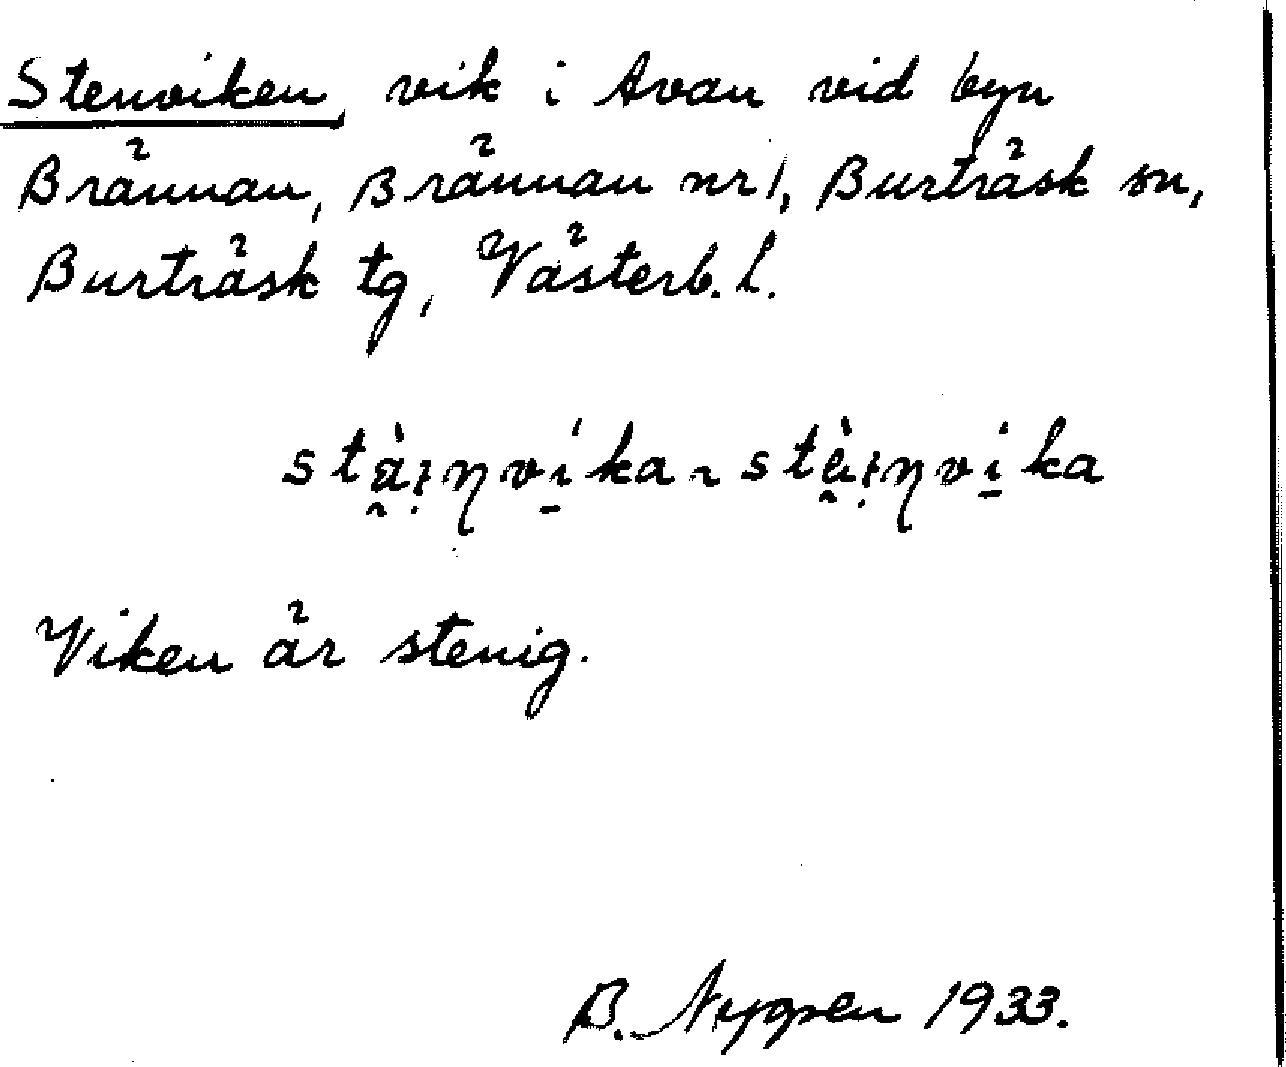 Stenviken, vik i Avan vid byn
Brännan, Brännan nr 1, Burträsk sn,
Burträsk tg, Västerb. l.
stà̰ı̣ŋví̱ka ~ stḛ̀ı̣ŋví̱ka
Viken är stenig.
B. Nygren 1933.